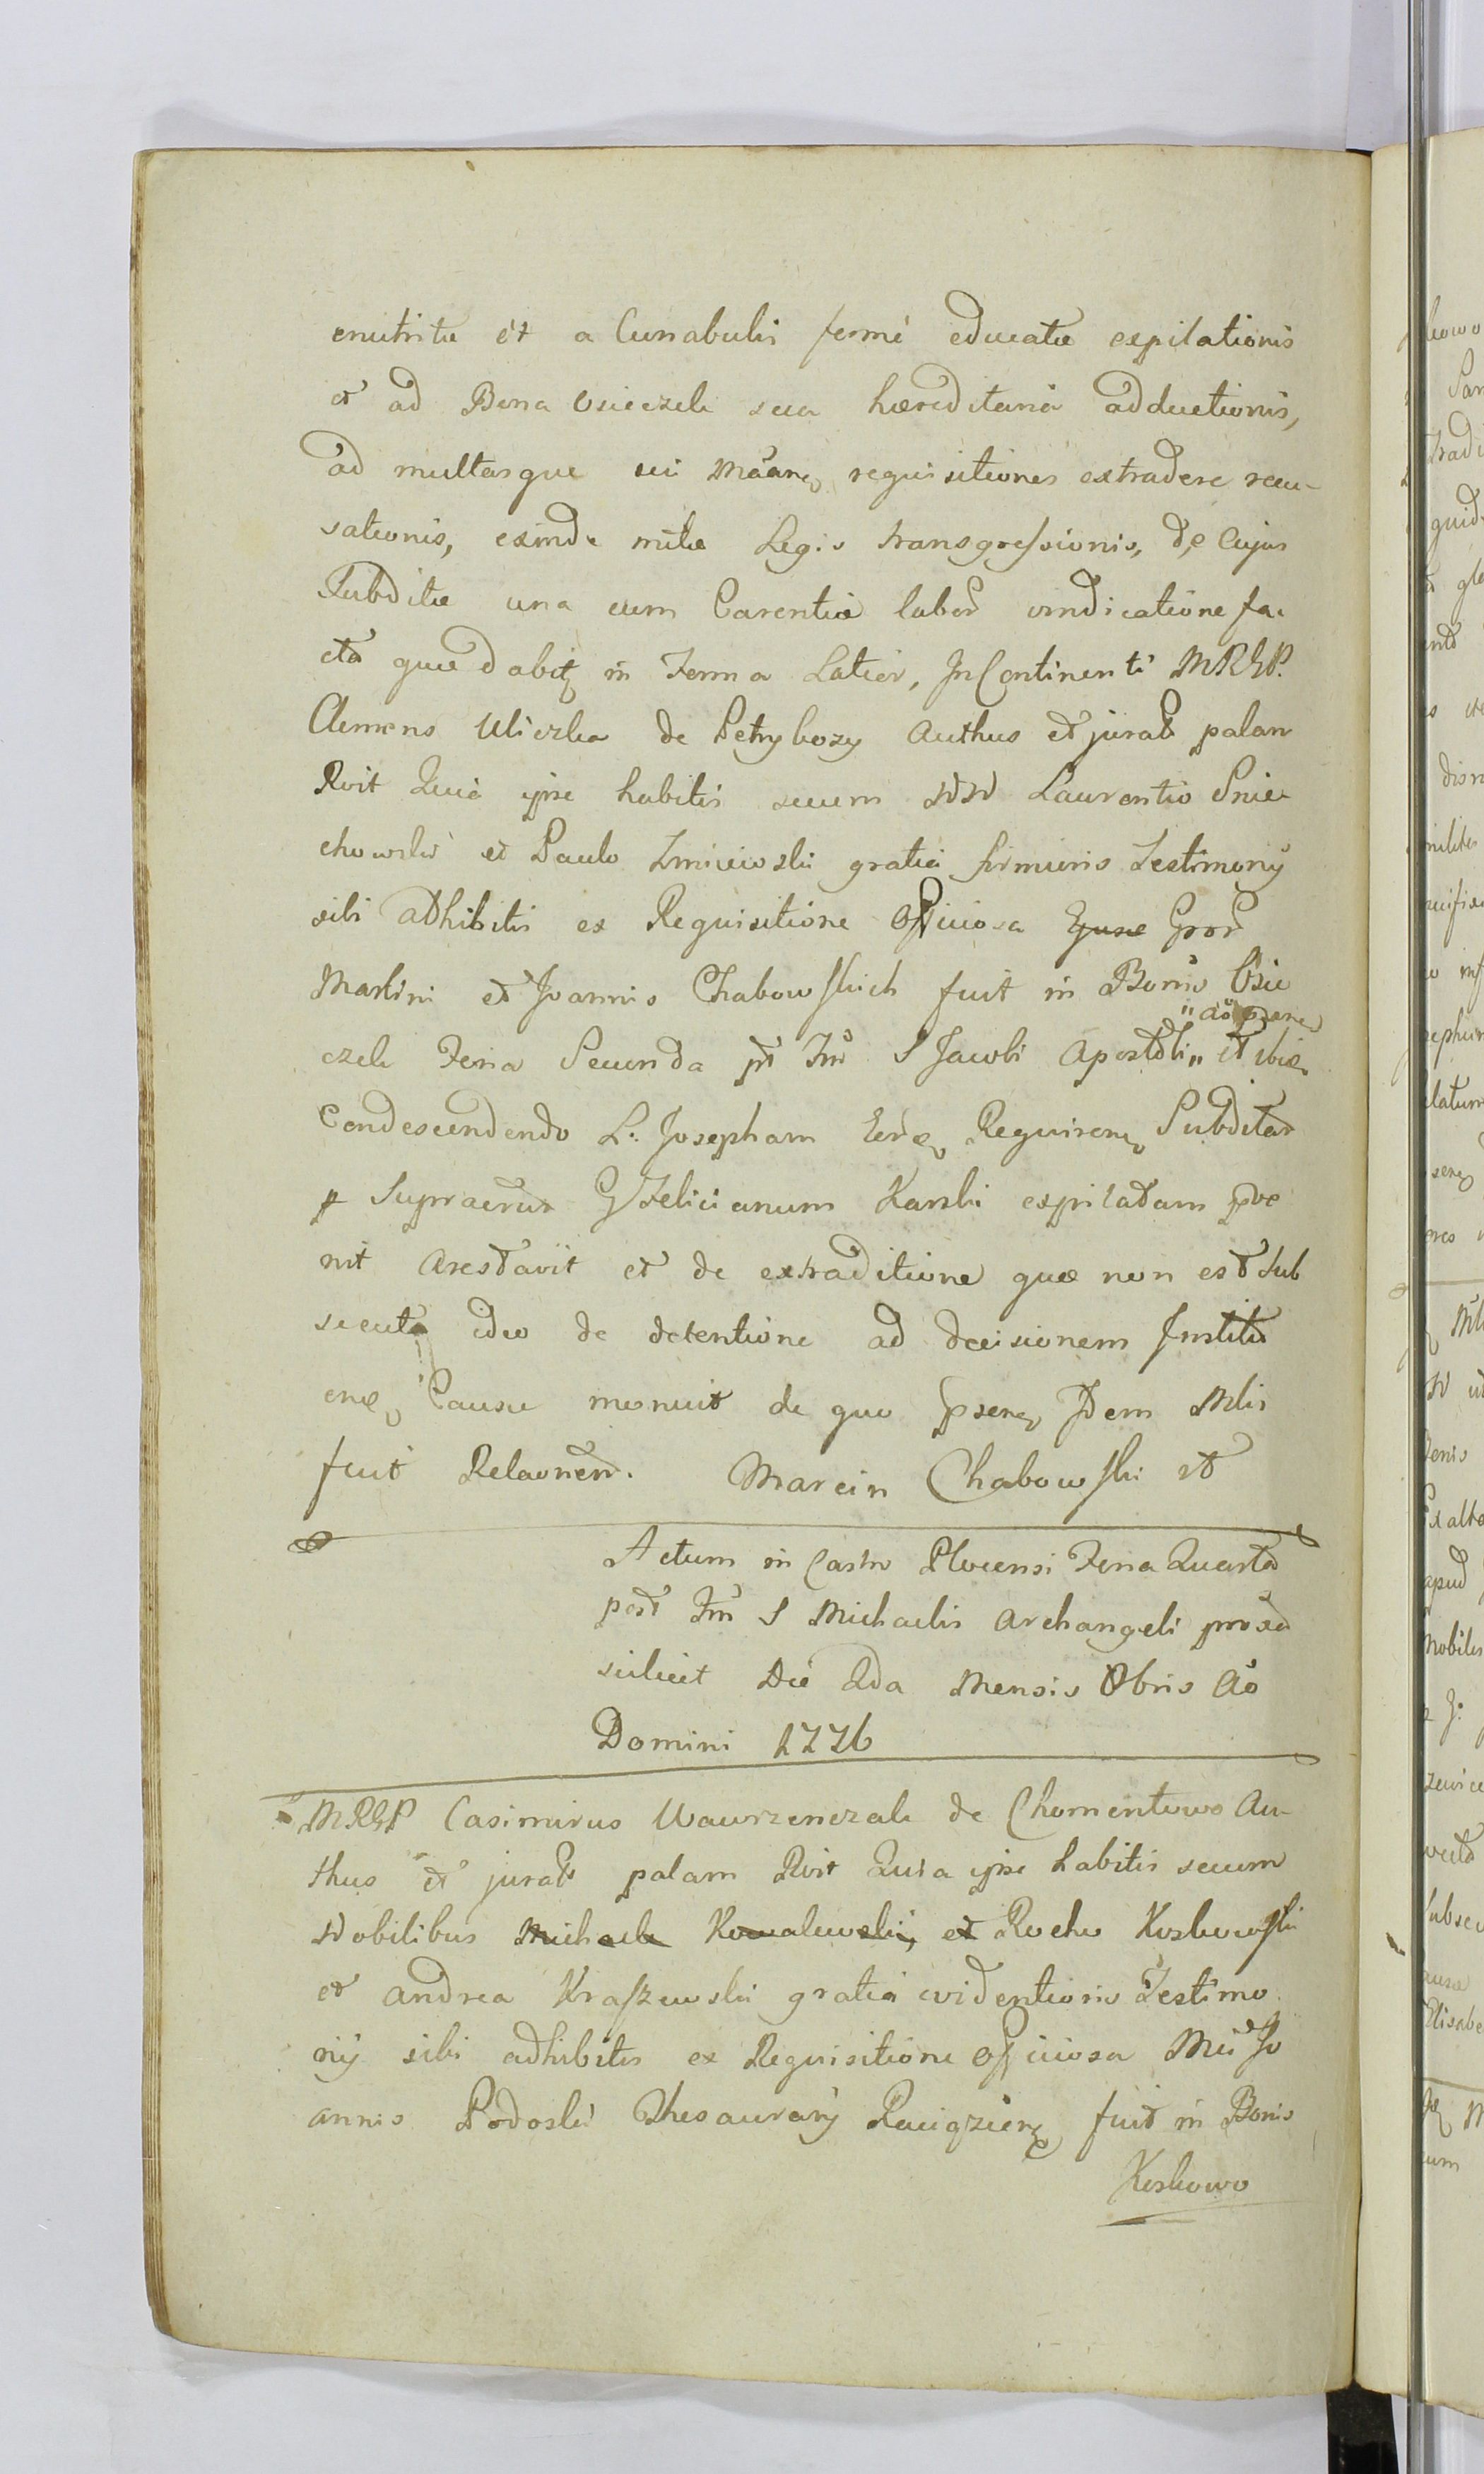 enutritæ et a Cunabulis fermé educatæ expilationis
et ad Bona Osieczek sua hæreditaria adductionis,
ad multasque sui requisitiones extradere recu-
sationis, exinde Legis transgressionis, de Cujus
Subditæ una cum Carentia labor vindicatione fa-
cta quæ dabit in Termo Latior, In Continenti MRGP.
Clemens Uliczka de Petrykozy Authus et jurat palam
Rvit Quia ipse habitis secum NN Laurentio Śnie
chowski et Paulo Zmiiewski gratia firmioris Testimonij
sibi adhibitis ex Requisitione Officiosa Gror
Martini et Joannis Chabowskich fuit in Bonis Osie
"ao præne
czek Feria Secunda pt Fm S Jacobi Apostoli " et ibiq
Condescendendo L: Josepham Requiren Subditam
p Supractum G Felicianum Karski expilatam
nit Arestavit et de extraditione quæ non est sub
secuta ideo de detentione ad decisionem Instituo
enæ Causæ monuit de quo præne Idem Mlis
fecit Relaonem. Marcin Chabowski
Actum in Castro Plocensi Feria Quarta
post Fm S Michaelis Archangeli proxa
scilicet Die 2da Mensis Obris Ao
Domini 1776
MRGP Casimirus Wawrzenczak de Chomentowo Au-
thus et jurat palam Rvit Quia ipse habitis secum
Nobilibus Michaele Kowalewski, et Rocho Koskowski
et Andrea Kraszewski gratia evidentioris Testimo
nij sibi adhibitis ex Requisitione Officiosa Mci Jo
annis Podoski Thesaurarij Raciązien fuit in Bonis
Koskowo